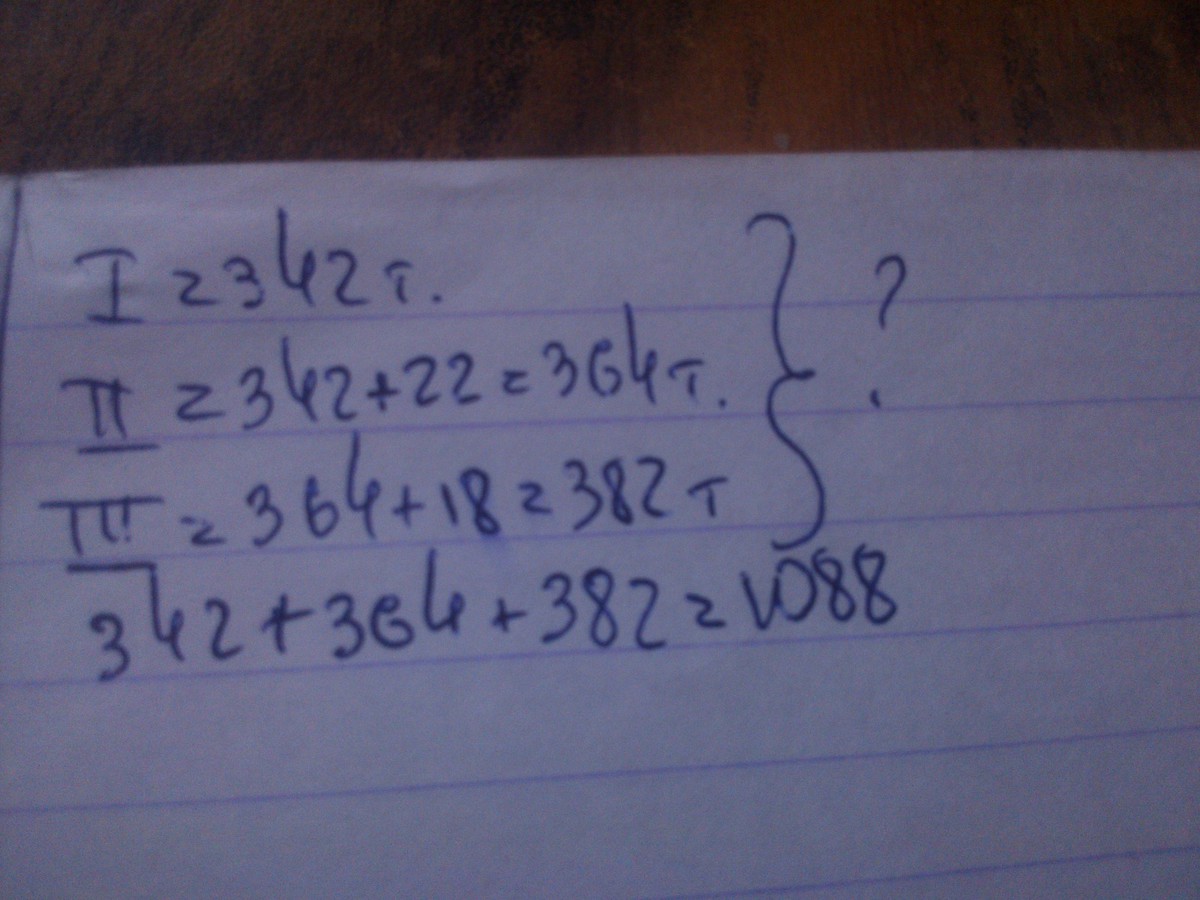 I = 342 т. } ?
II = 342+22 = 364 т.
III = 364+18 = 382 т
342+364+382=1088